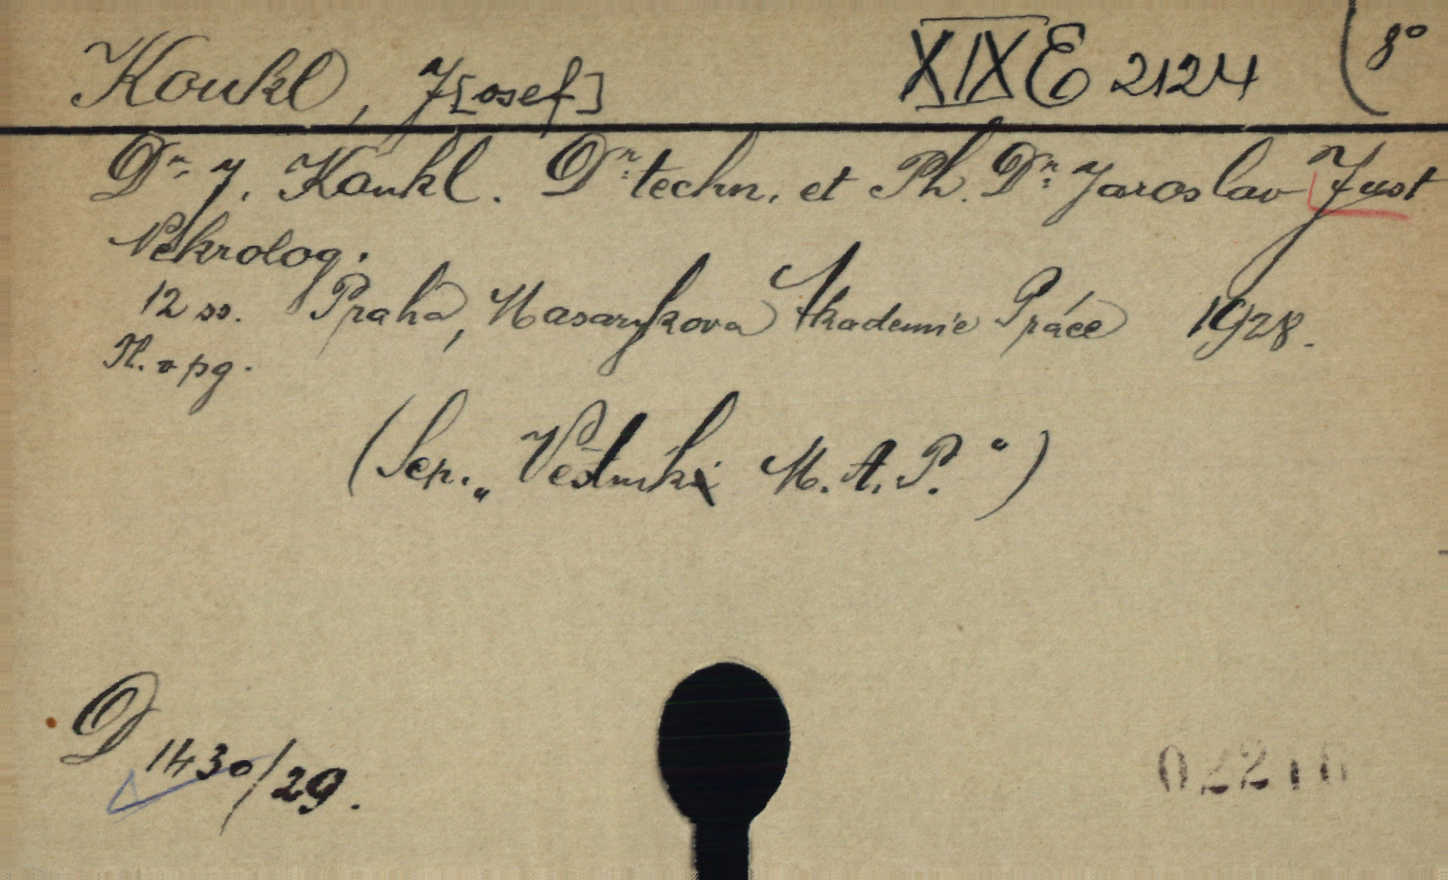 Koukl, J[osef] XIX E 2124 8°
Dr. J. Koukl. Dr. techn. et Ph. Dr. Jaroslav Just
Nekrolog.
12 ss. Praha, Masarykova Akademie Práce 1928.
Tl. o pg.
(Sep. „Věstník M. A. P.“)
D 1430/29.